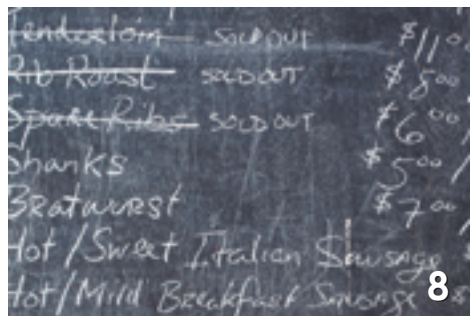 Tenderloin SOLD OUT $11.0
Rib Roast SOLD OUT $8.00
Spare Ribs SOLD OUT $6.00/
Shanks $5.00/
Bratwurst $7.00/
Hot/Sweet Italian Sausage $
Hot/Mild Breakfast Sausage $
8